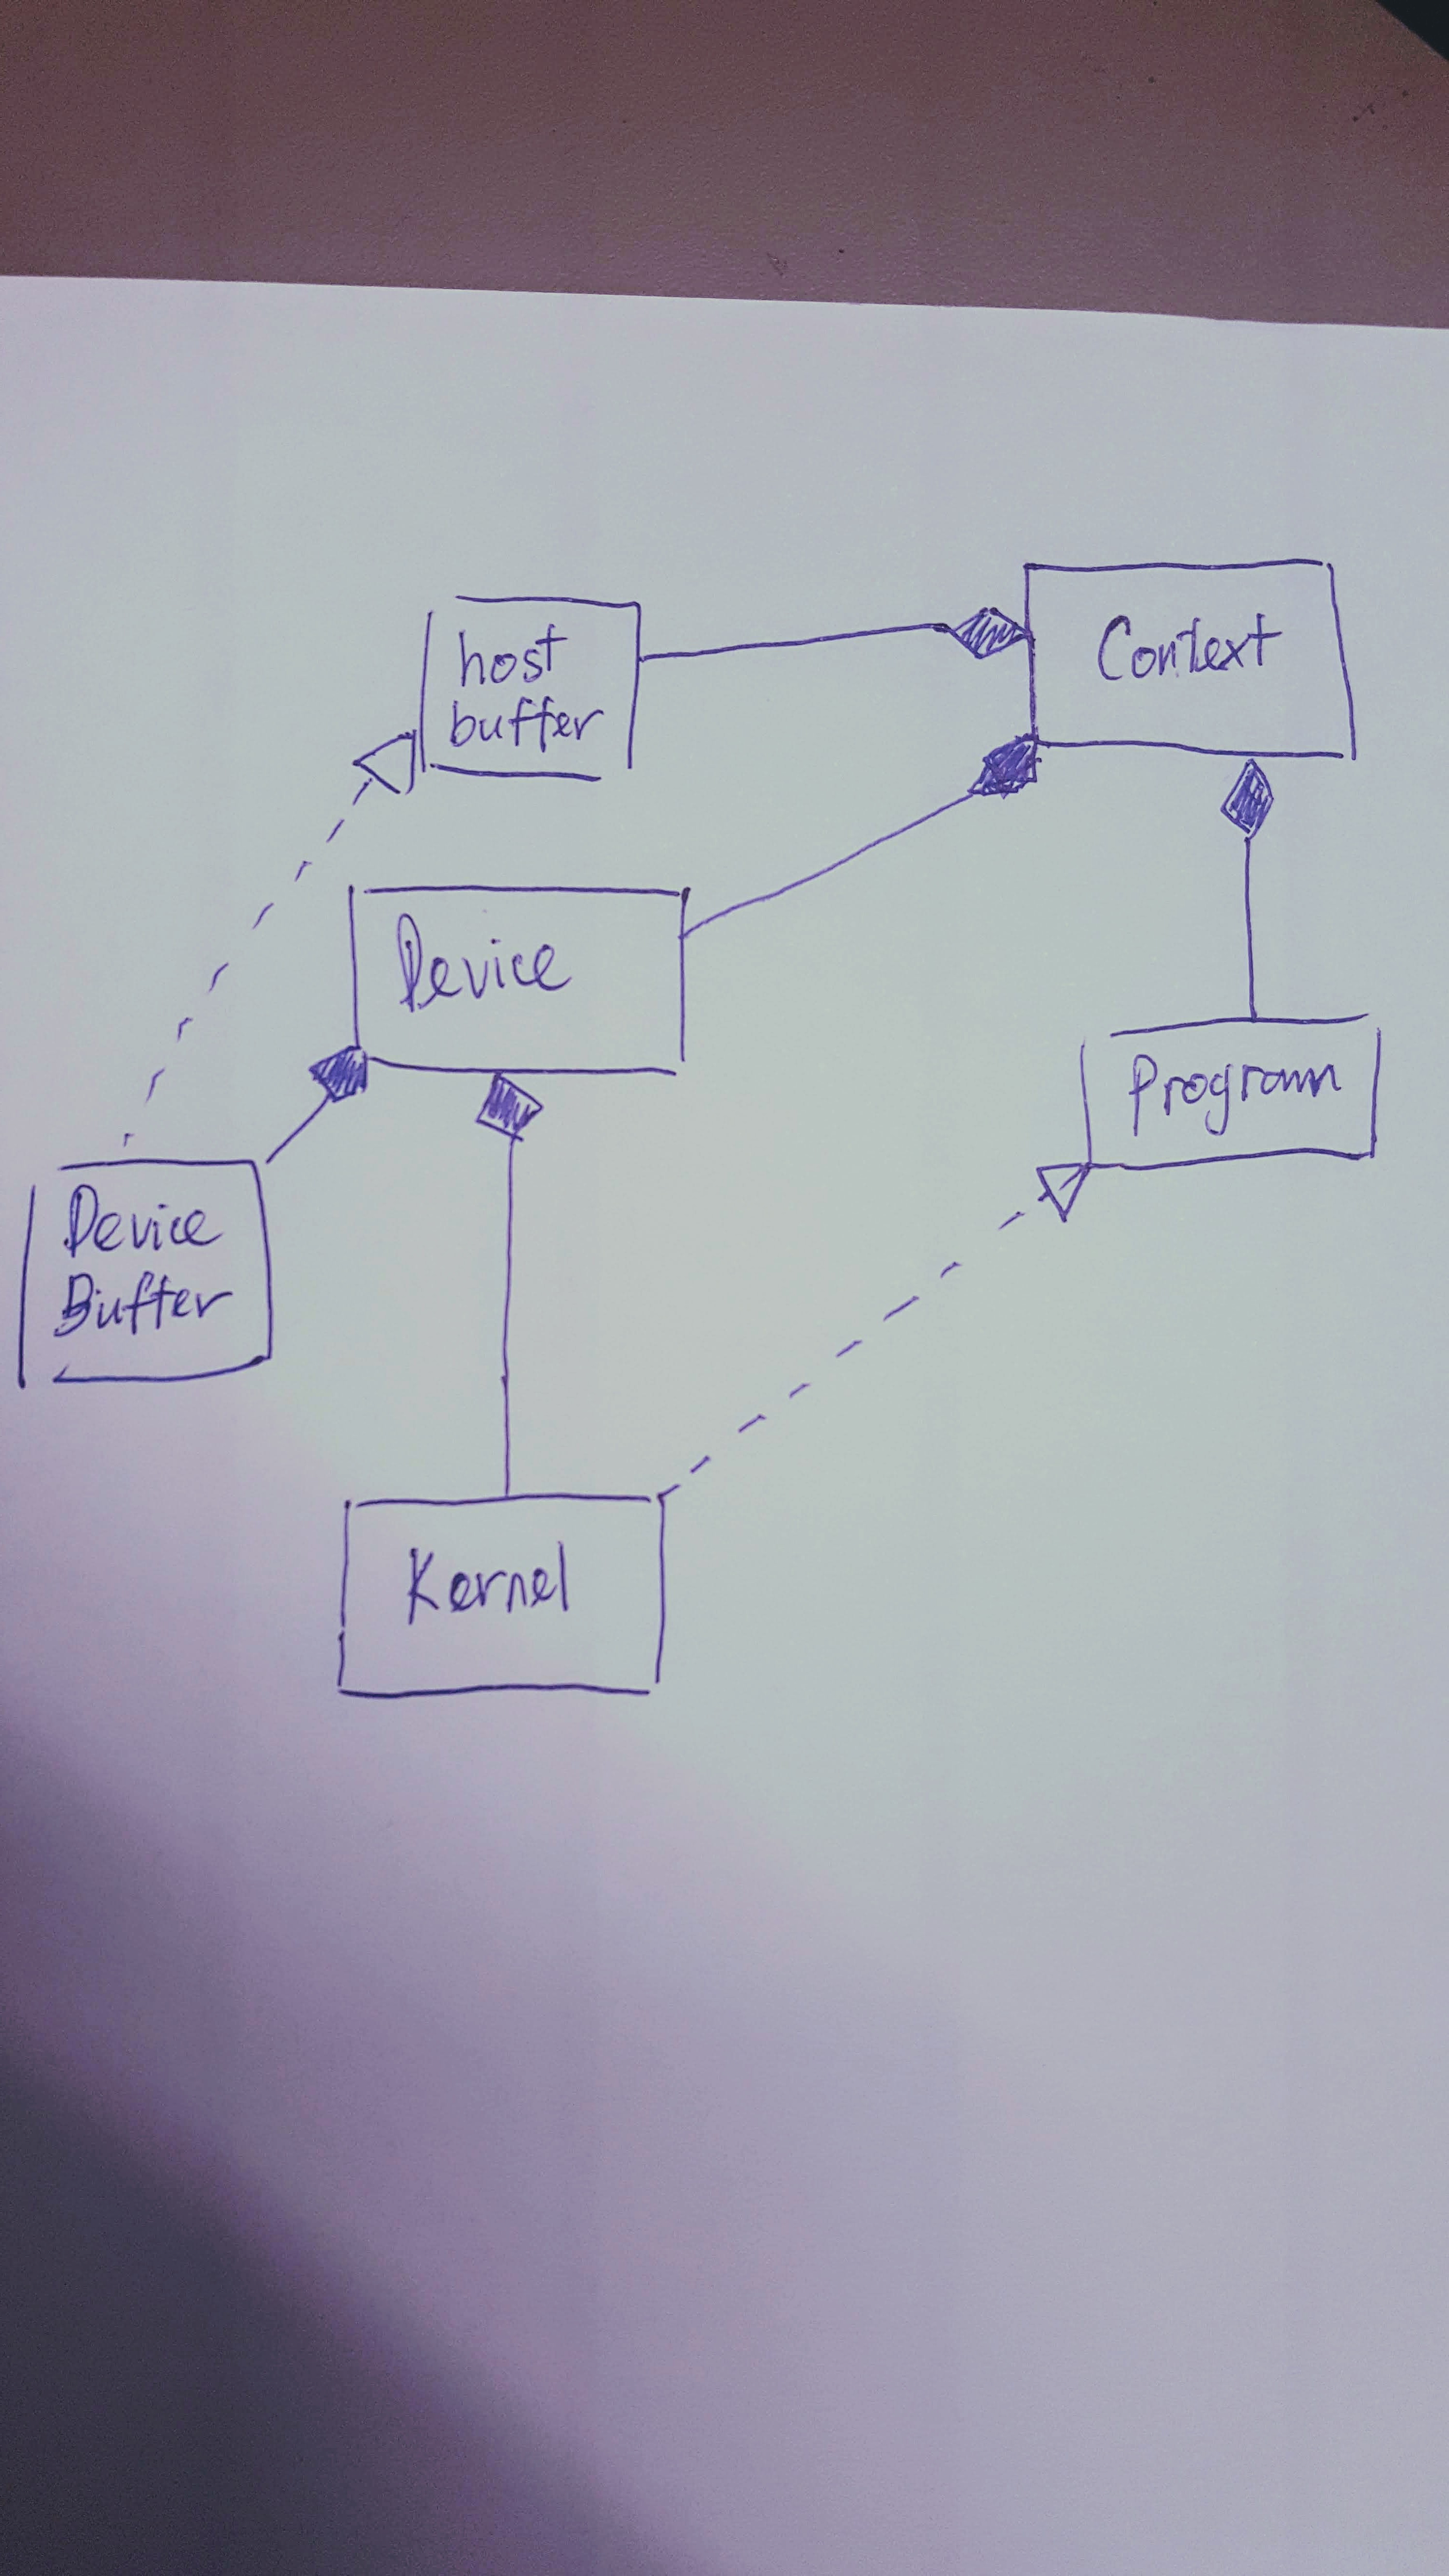 host
buffer
Context
Device
Program
Device
Buffer
Kernel